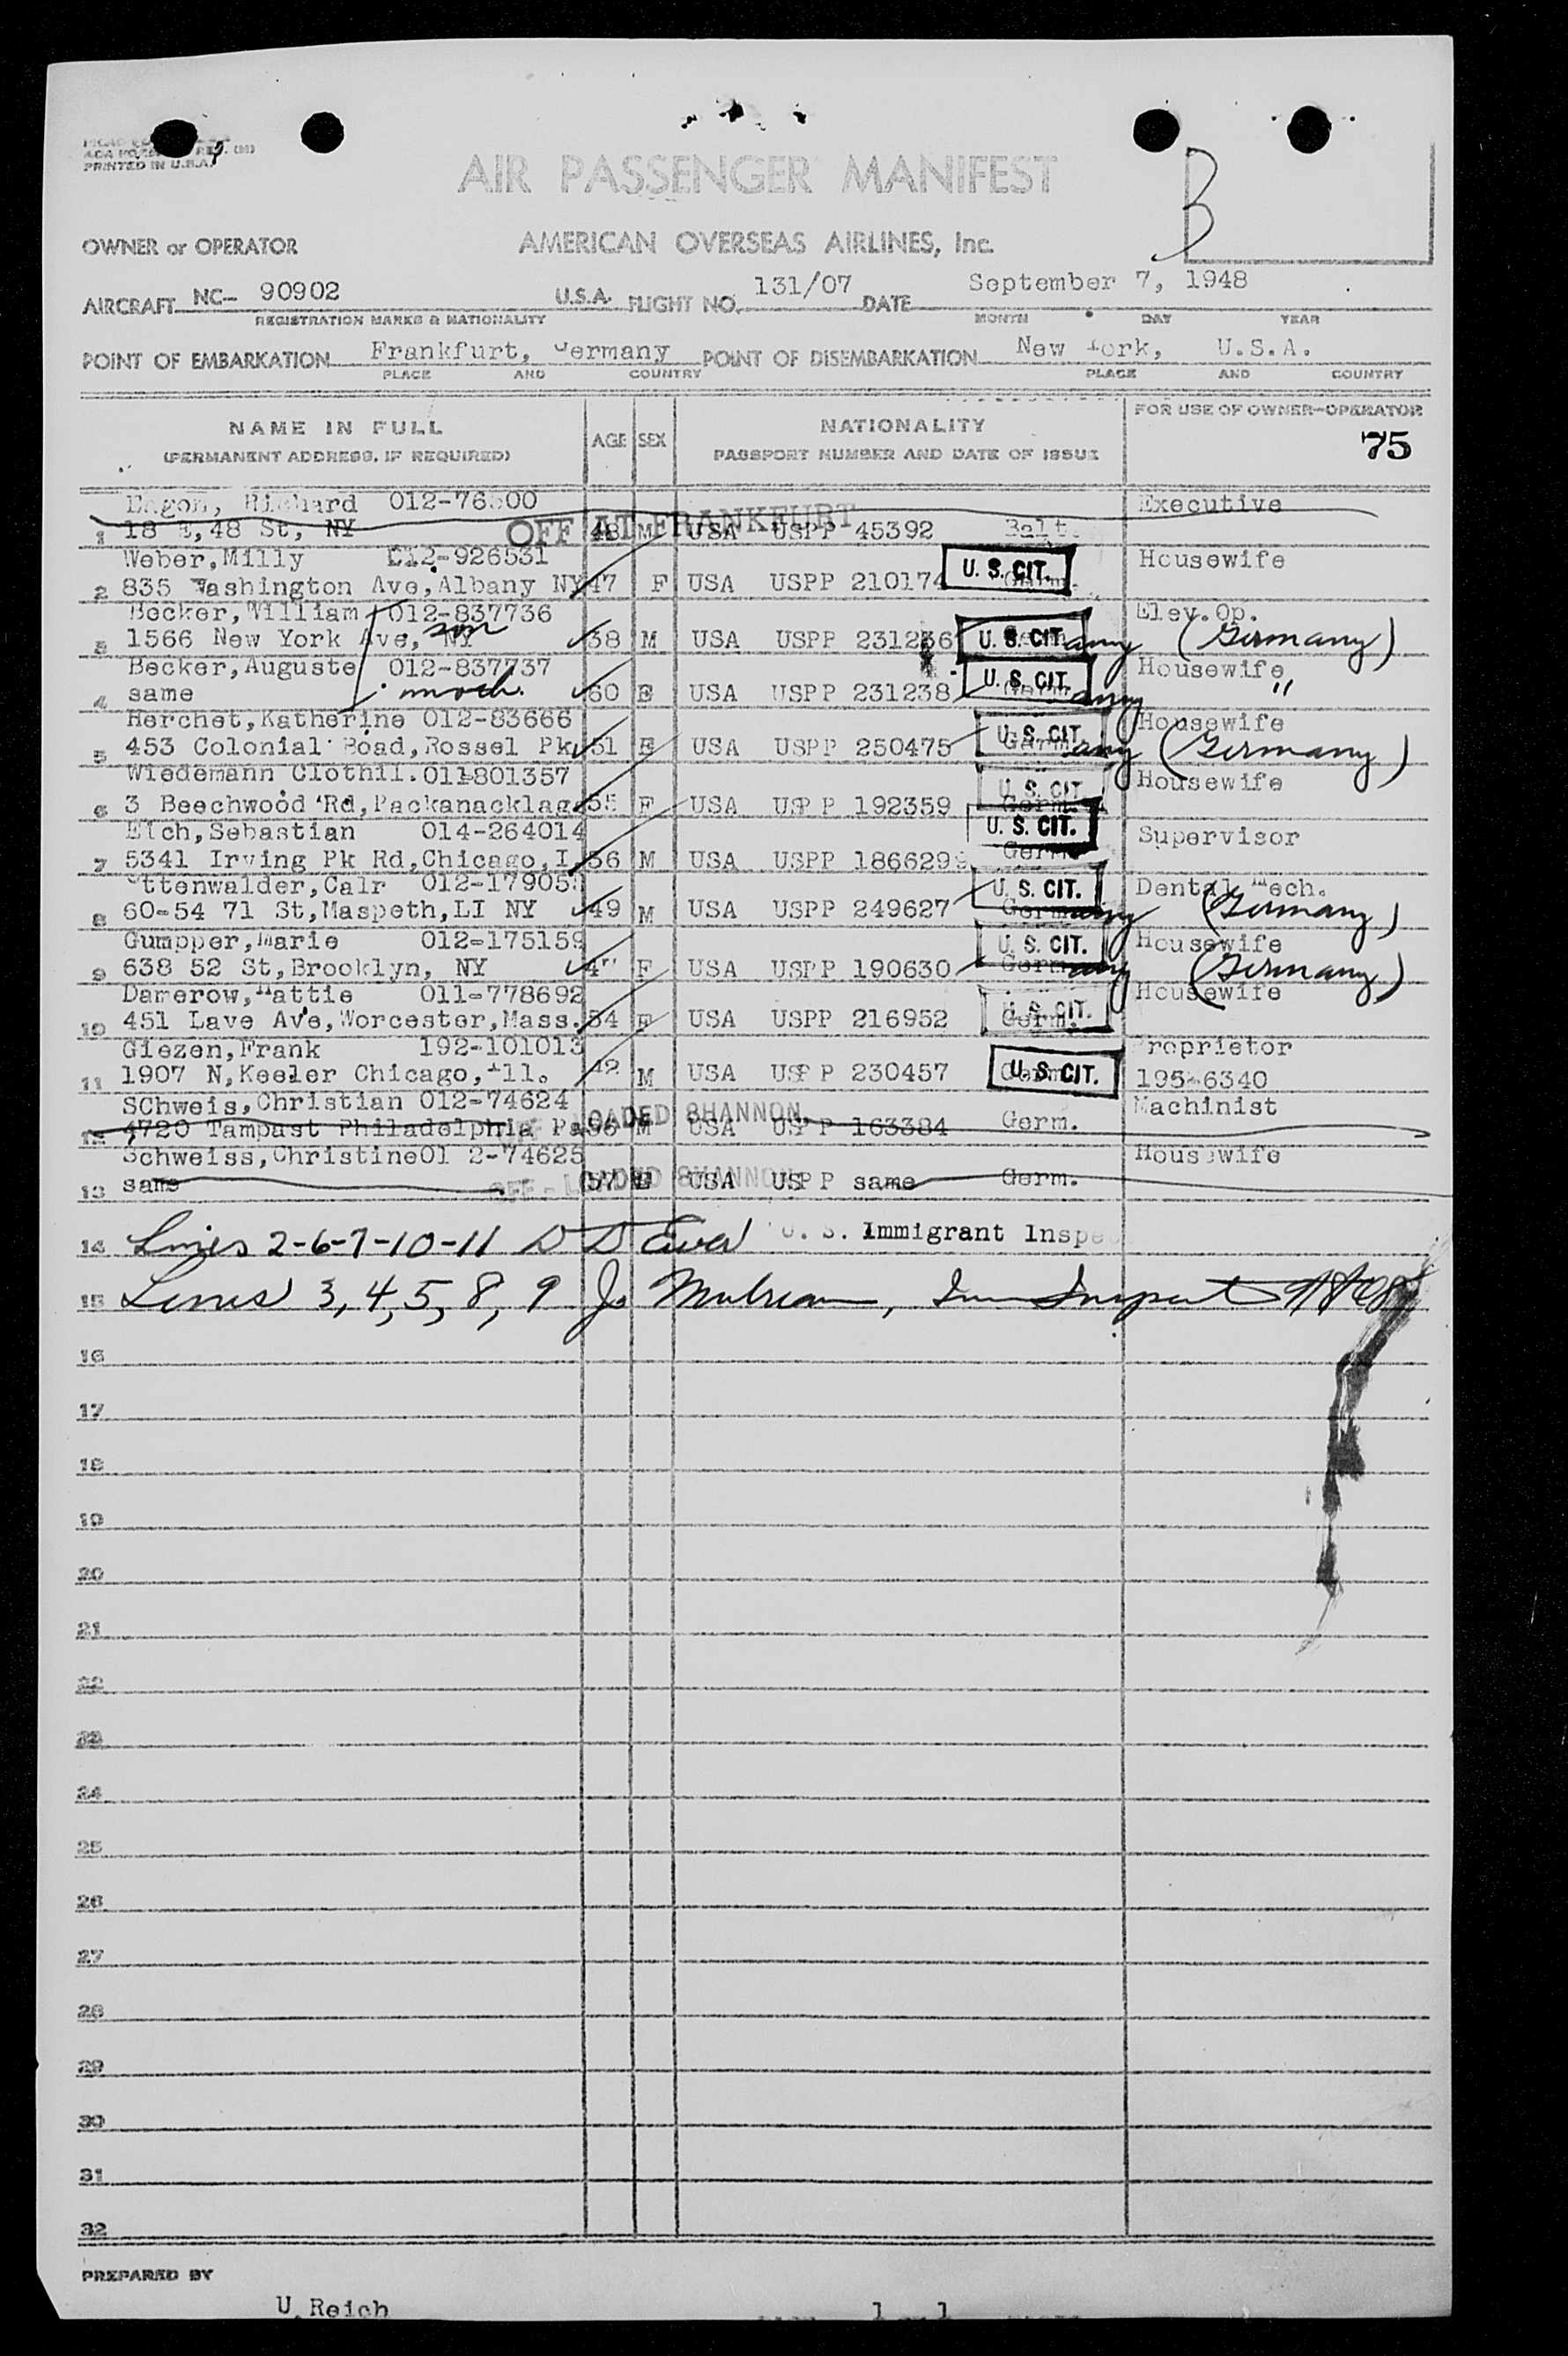 PRINTED IN U.S.A.
AIR PASSENGER MANIFEST
B
OWNER or OPERATOR AMERICAN OVERSEAS AIRLINES, Inc.
AIRCRAFT NC- 90902 U.S.A. FLIGHT NO. 131/07 DATE September 7, 1948
REGISTRATION MARKS & NATIONALITY MONTH DAY YEAR
POINT OF EMBARKATION Frankfurt, Germany POINT OF DISEMBARKATION New York, U.S.A.
PLACE AND COUNTRY PLACE AND COUNTRY
NAME IN FULL AGE SEX NATIONALITY FOR USE OF OWNER-OPERATOR
(PERMANENT ADDRESS, IF REQUIRED) PASSPORT NUMBER AND DATE OF ISSUE 75
Richard Executive
1 18 E,48 St, NY OFF AT FRANKFURT 48 M USA USPP 45392 Balt.
Weber,Milly 012-926531 Housewife
2 835 Washington Ave,Albany NY 47 F USA USPP 210174 Germ. U. S. CIT.
Becker,William 012-837736 Elev.Op.
3 1566 New York Ave, NY son 38 M USA USPP 231236 U. S. CIT. Germany (Germany)
Becker,Auguste 012-837737 Housewife
4 same moth. 60 F USA USPP 231238 U. S. CIT. Germany "
Herchet,Katherine 012-83666 Housewife
5 453 Colonial Road,Rossel Pk 51 F USA USPP 250475 U. S. CIT. Germany (Germany)
Wiedemann Clothil. 011-801357 Housewife
6 3 Beechwood Rd,Packanacklag 55 F USA USPP 192359 U. S. CIT. Germ.
Eich,Sebastian 014-264014 Supervisor
7 5341 Irving Pk Rd,Chicago,I 56 M USA USPP 186629 U. S. CIT. Germ.
Ottenwalder,Calr 012-17905 Dental Mech.
8 60-54 71 St,Maspeth,LI NY 49 M USA USPP 249627 U. S. CIT. Germany (Germany)
Gumpper,Marie 012-175159 Housewife
9 638 52 St,Brooklyn, NY F USA USPP 190630 U. S. CIT. Germany (Germany)
Damerow,Hattie 011-778692 Housewife
10 451 Lave Ave,Worcester,Mass. 54 F USA USPP 216952 U. S. CIT. Germ.
Giezen,Frank 192-101013 Proprietor
11 1907 N,Keeler Chicago,Ill. 42 M USA USPP 230457 Germ. U. S. CIT. 195-6340
SChweis,Christian 012-74624 Machinist
12 4720 Tampast Philadelphia Pa 56 M OFF-LOADED SHANNON USA USPP 163384 Germ.
Schweiss,Christine 012-74625 Housewife
13 same OFF-LOADED SHANNON 57 F USA USPP same Germ.
14 Lines 2-6-7-10-11 U. S. Immigrant Inspec
15 Lines 3, 4, 5, 8, 9
16
17
18
19
20
21
22
23
24
25
26
27
28
29
30
31
32
PREPARED BY
U.Reich